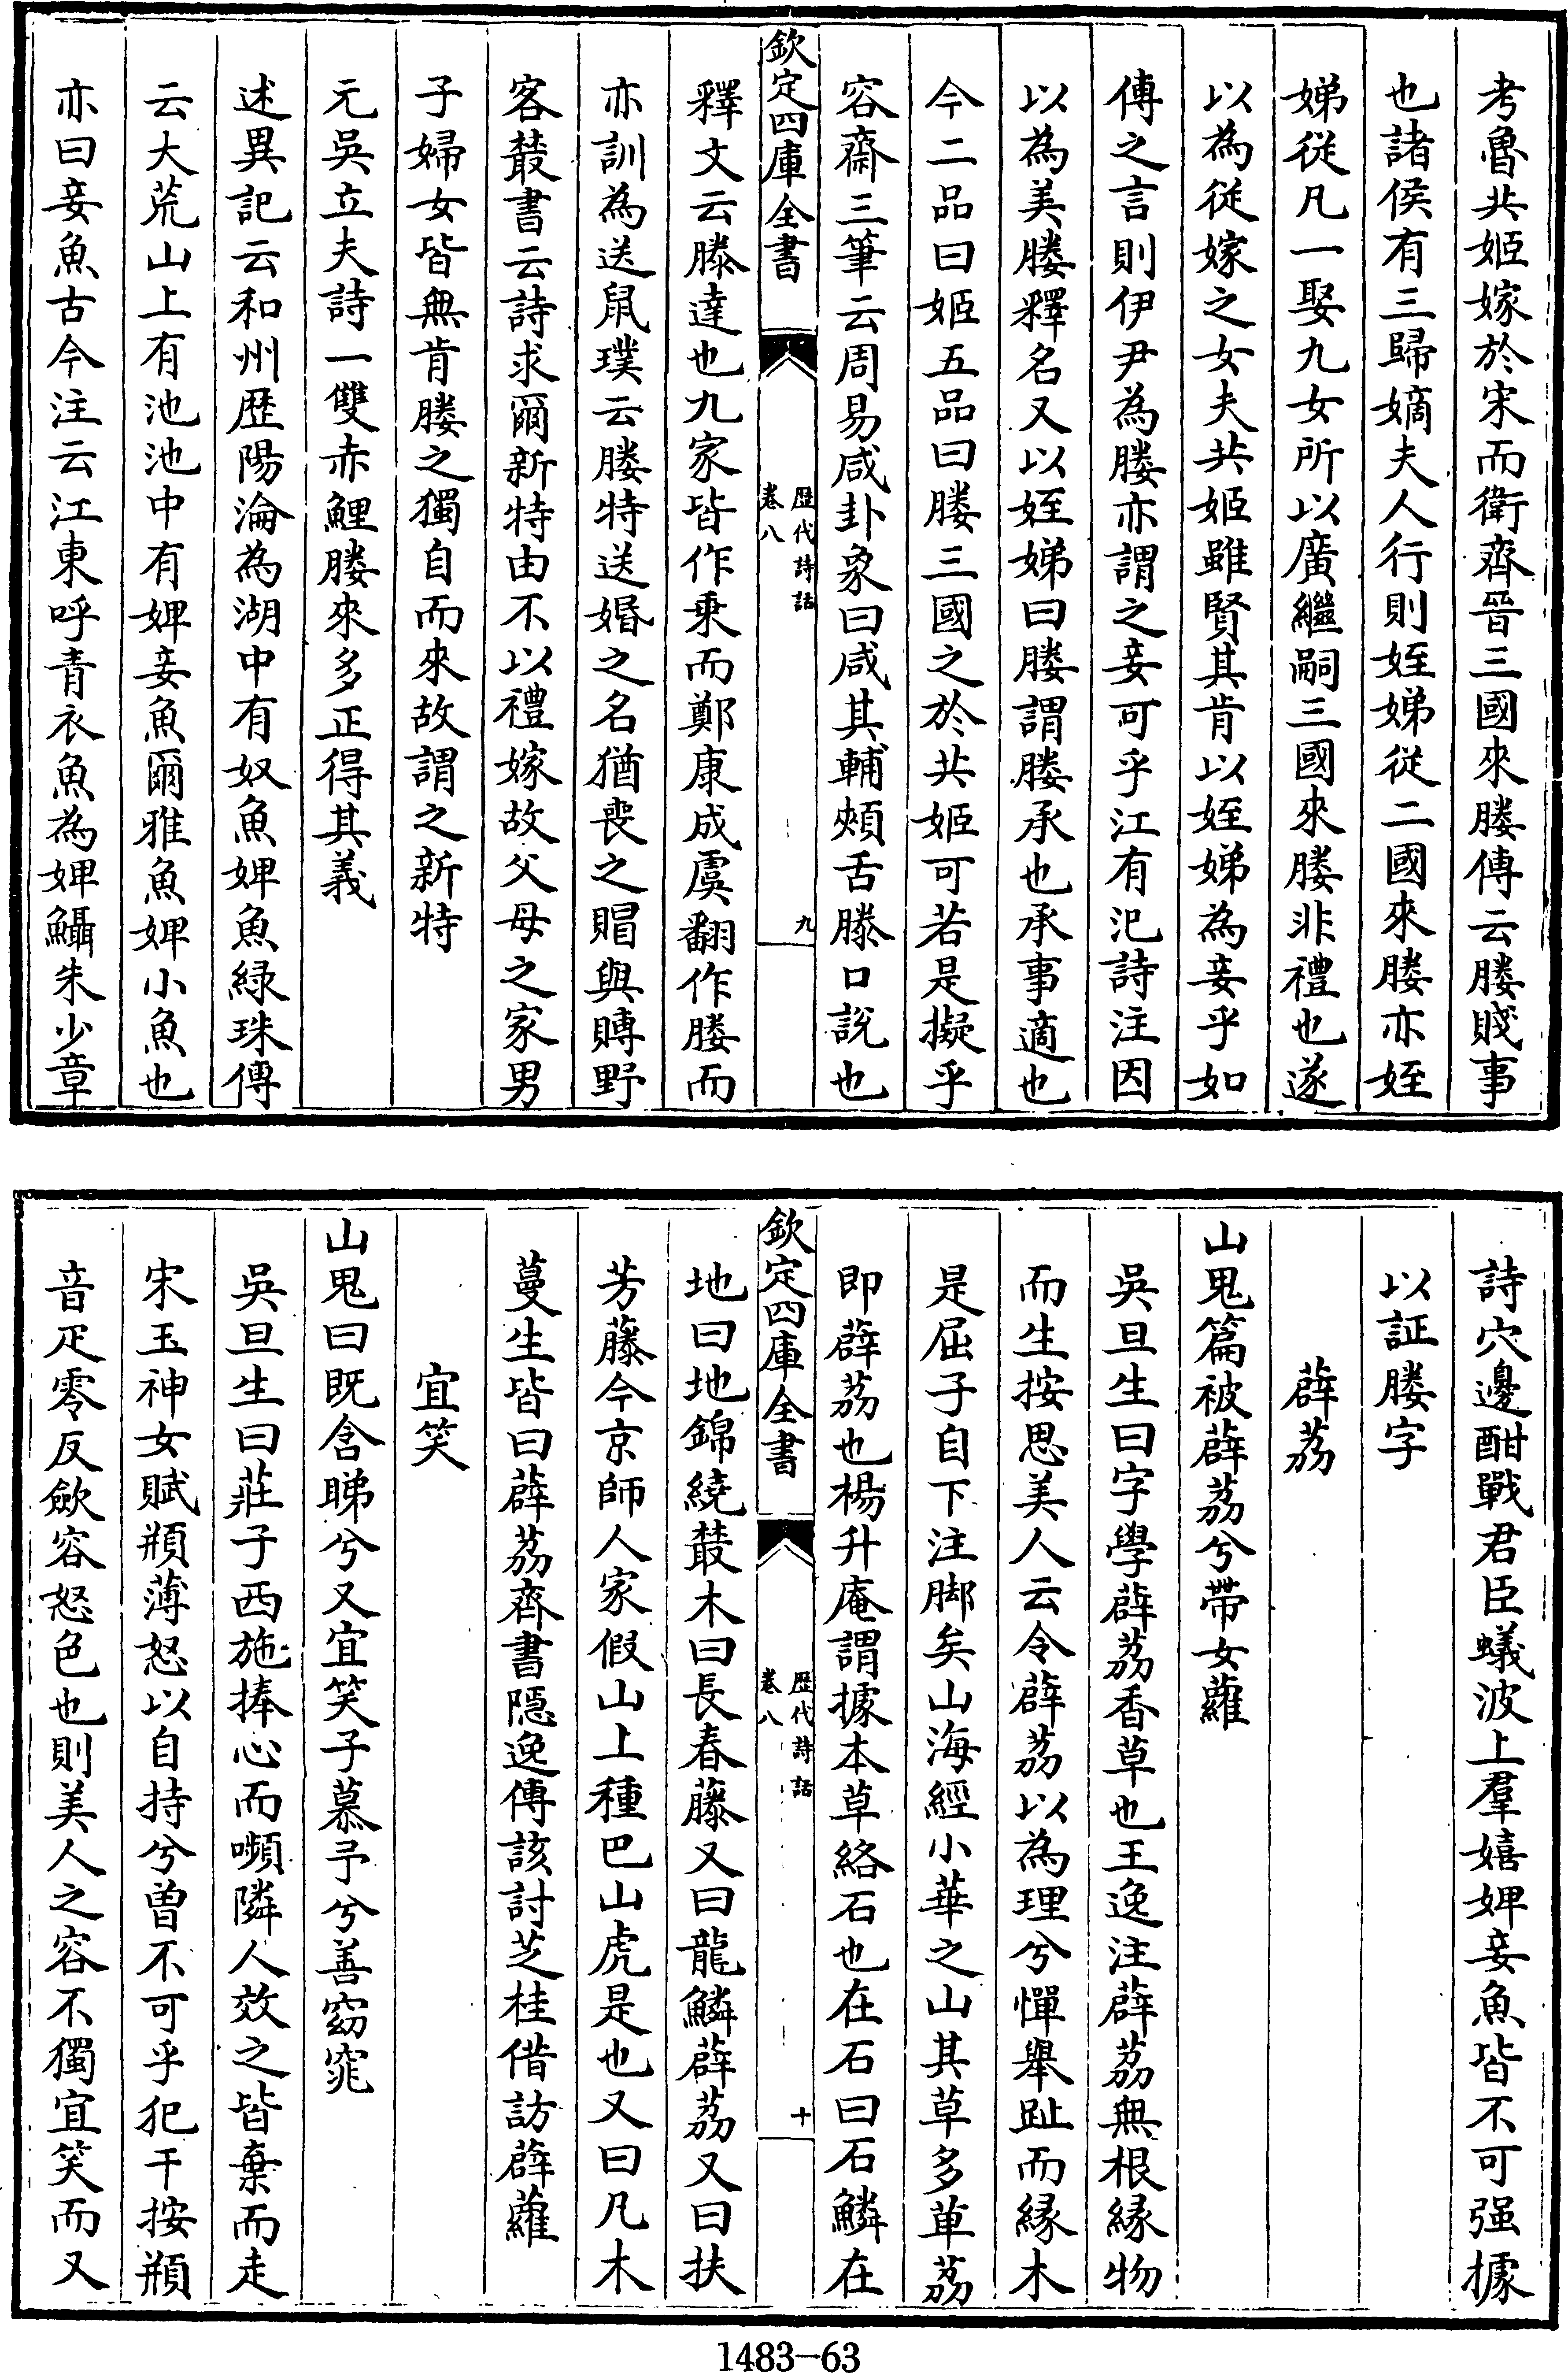 考魯共姬嫁於宋而衛齊晉三國來媵傳云媵賤事
也諸侯有三歸嫡夫人行則姪娣從二國來媵亦姪
娣從凡一娶九女所以廣繼嗣三國來媵非禮也遂
以為從嫁之女夫共姬雖賢其肯以姪娣為妾乎如
傳之言則伊尹為媵亦謂之妾可乎江有汜詩注因
以為美媵釋名又以姪娣曰媵謂媵承也承事適也
今二品曰姬五品曰媵三國之於共姬可若是擬乎
容齋三筆云周易咸卦象曰咸其輔頰舌滕口說也
欽定四庫全書
歷代詩話
卷八
九
釋文云滕達也九家皆作乘而鄭康成虞翻作媵而
亦訓為送鼠璞云媵特送婚之名猶喪之賵與賻野
客叢書云詩求爾新特由不以禮嫁故父母之家男
子婦女皆無肯媵之獨自而來故謂之新特
元吳立夫詩一雙赤鯉媵來多正得其義
述異記云和州歴陽淪為湖中有奴魚婢魚緑珠傳
云大荒山上有池池中有婢妾魚爾雅魚婢小魚也
亦曰妾魚古今注云江東呼青衣魚為婢鱺朱少章
詩穴邊酣戰君臣蟻波上羣嬉婢妾魚皆不可强據
以証媵字
薜荔
山鬼篇被薜荔兮帶女蘿
吳旦生曰字學薜荔香草也王逸注薜荔無根縁物
而生按思美人云令薜荔以為理兮憚舉趾而縁木
是屈子自下注脚矣山海經小華之山其草多萆荔
即薜荔也楊升庵謂據本草絡石也在石曰石鱗在
欽定四庫全書
歷代詩話
卷八
十
地曰地錦繞叢木曰長春藤又曰龍鱗薜荔又曰扶
芳藤今京師人家假山上種巴山虎是也又曰凡木
蔓生皆曰薜荔齊書隱逸傳該討芝桂借訪薜蘿
宜笑
山鬼曰既含睇兮又宜笑子慕予兮善窈窕
吳旦生曰莊子西施捧心而嚬隣人效之皆棄而走
宋玉神女賦頩薄怒以自持兮曾不可乎犯干按頩
音疋零反歛容怒色也則美人之容不獨宜笑而又
1483-63